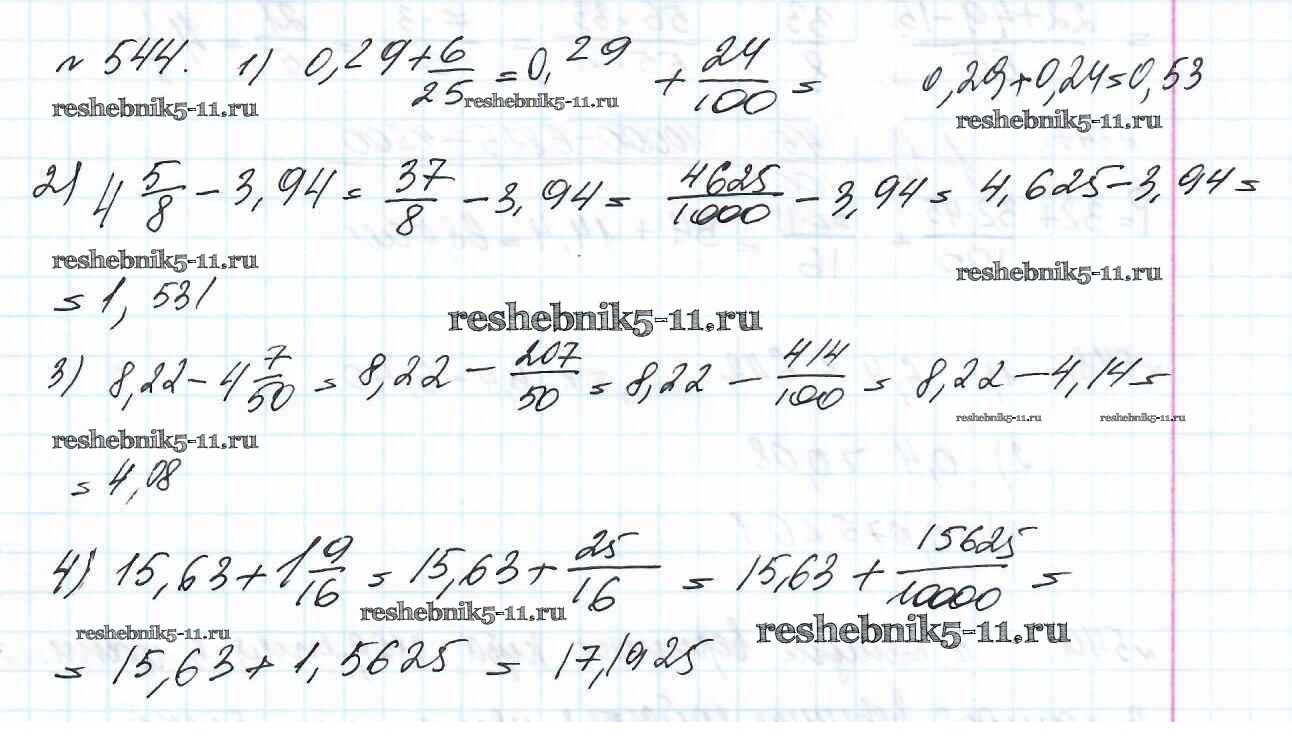 № 544. 1) 0,29+6/25=0,29 + 24/100 = 0,29+0,24=0,53
reshebnik5-11.ru reshebnik5-11.ru reshebnik5-11.ru
2) 4 5/8 - 3,94 = 37/8 - 3,94 = 4625/1000 - 3,94 = 4,625-3,94 =
reshebnik5-11.ru reshebnik5-11.ru
= 1, 531
reshebnik5-11.ru
3) 8,22 - 4 7/50 = 8,22 - 207/50 = 8,22 - 414/100 = 8,22 - 4,14 =
reshebnik5-11.ru reshebnik5-11.ru reshebnik5-11.ru
= 4,08
4) 15,63+1 9/16 = 15,63+ 25/16 = 15,63 + 15625/10000 =
reshebnik5-11.ru reshebnik5-11.ru reshebnik5-11.ru
= 15,63+1,5625 = 17,1925